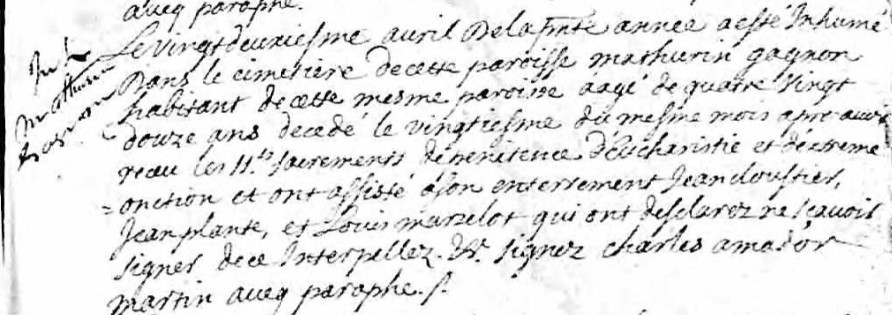 avecq paraphe.
Le vingt deuxiesme avril De la pnte année a esté Inhumé
Dans le cimetiere de cette paroisse mathurin gagnon
habitant de cette mesme paroisse aagé de quatre vingt
douze ans decedé le vingtiesme du mesme mois apres avoir
receu les Sts sacrements de penitence d'Eucharistie et d'extreme
=onction et ont assisté a son enterrement Jean cloustier,
Jean plante, et Louis marzelot qui ont desclarez ne scavoir
signer de ce Interpellez. signez charles amador
martin avecq paraphe./.
mathurin
gagnon